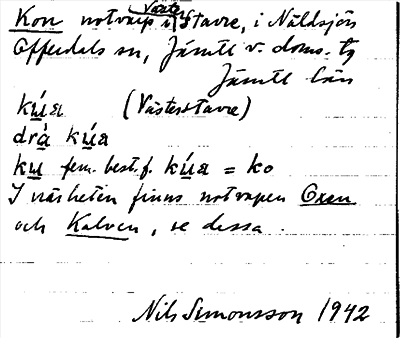 Kon notvarp i Väster Stavre, i Näldsjön
Offerdals sn, Jämtl v. doms. tg
Jämtl län
kúa (Västerstavre)
drá kúa
ku fem. best. f. kúa = ko
I närheten finns notvarpen Oxen
och Kalven, se dessa.
Nils Simonsson 1942